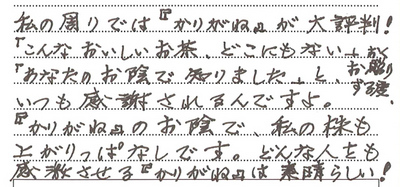 私の周りでは『かりがね』が大評判!
「こんなおいしいお茶、どこにもない」
「あなたのお陰で知りました」と、お贈りする度、
いつも感謝されるんですよ。
『かりがね』のお陰で、私の株も
上がりっぱなしです。どんな人をも
感激させる『かりがね』は素晴らしい!